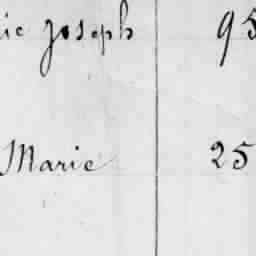 ie Joseph 95
Marie 25